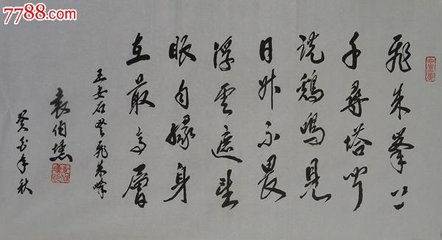 7788.com
飛来峯上
千尋塔聞
說鷄鳴見
日升不畏
浮雲遮望
眼自緣身
在最高層
王安石登飛来峰
袁伯
癸巳年秋